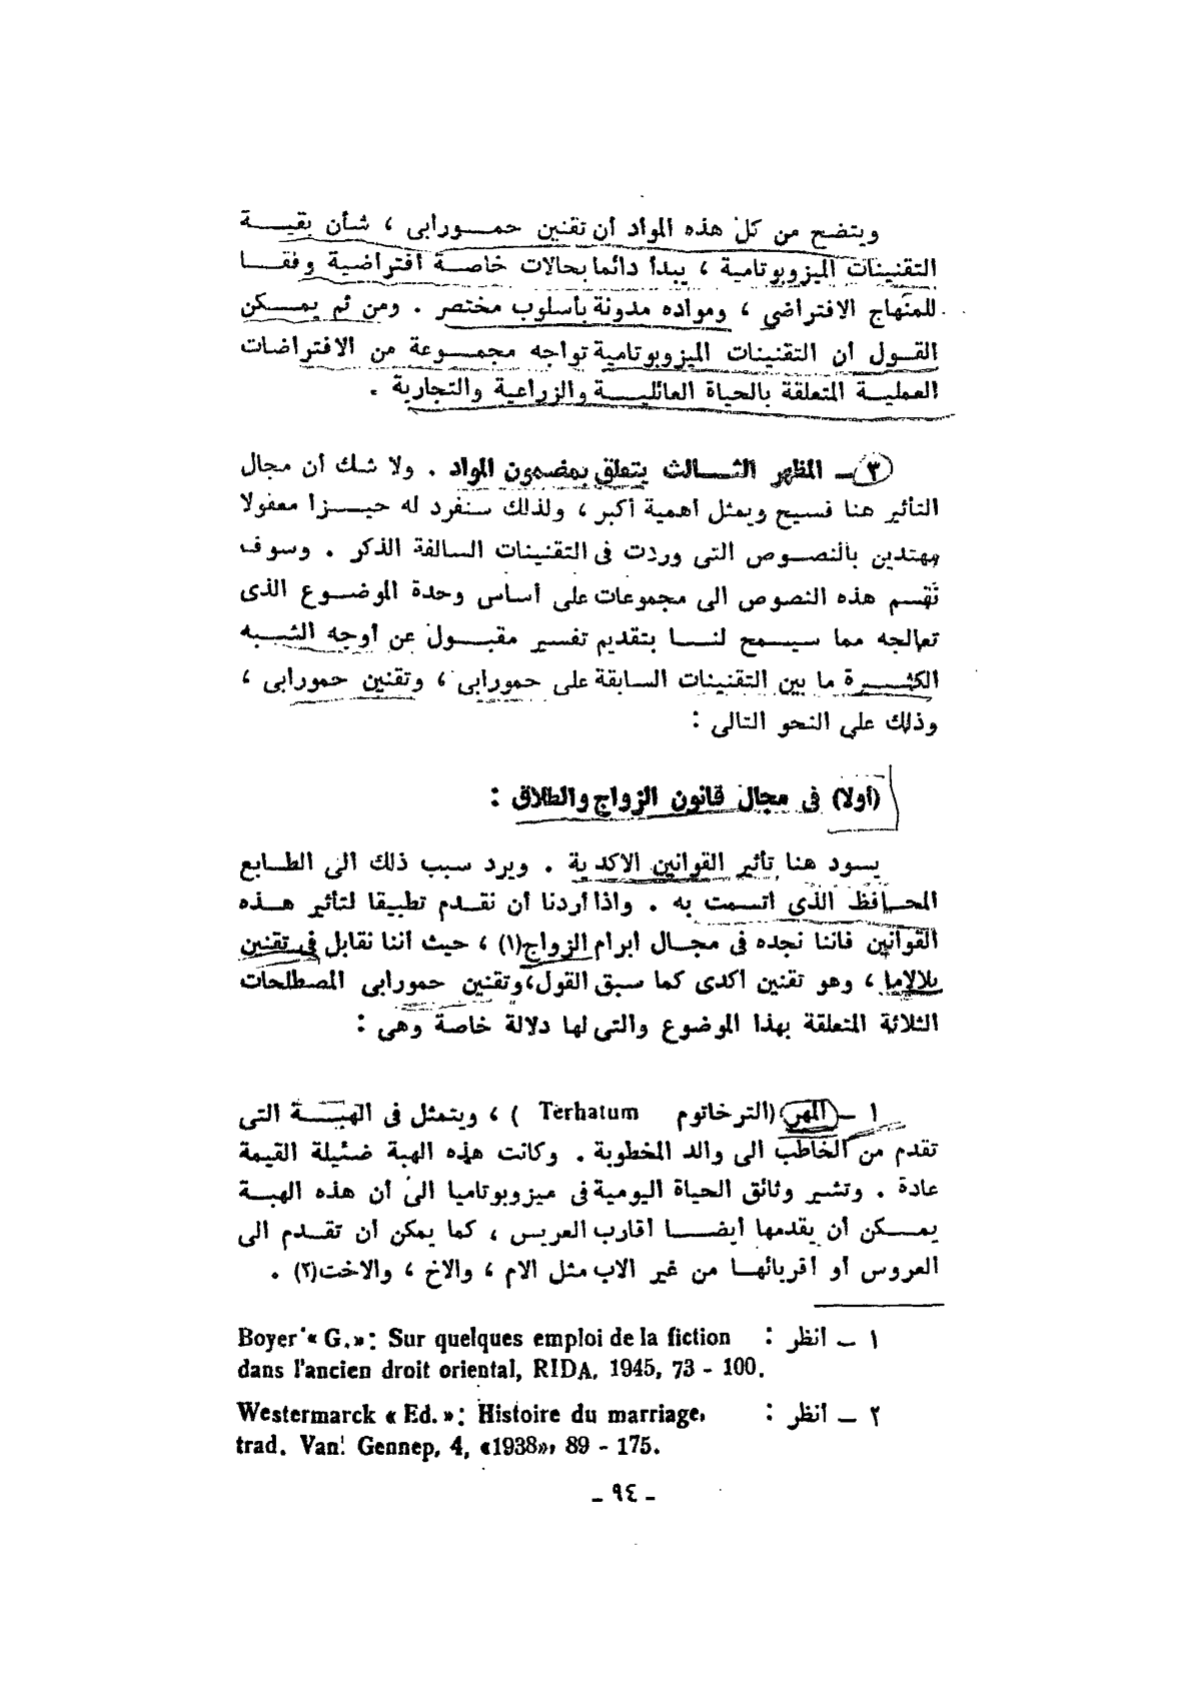 ويتضح من كل هذه المواد أن تقنين حمـورابى ، شأن بقيـــة
التقنينات الميزوبوتامية ، يبدأ دائما بحالات خاصـة افتراضية وفقـــا
للمنهاج الافتراضي ، ومواده مدونة بأسلوب مختصر . ومن ثم يمـــكن
القـول أن التقنينات الميزوبوتامية تواجه مجمـوعة من الافتراضات
العمليـة المتعلقة بالحياة العائليـــة والزراعية والتجارية .
٣ ـ المظهر الثـــالث يتعلق بمضمون المواد . ولا شك أن مجال
التأثير هنا فسيح ويمثل أهمية أكبر ، ولذلك سنفرد له حيـــزا معقولا
مهتدين بالنصـوص التى وردت فى التقنينات السالفة الذكر . وسوف
نقسم هذه النصوص الى مجموعات على أساس وحدة الموضـوع الذى
تعالجه مما سيـمح لنـــا بتقديم تفسير مقبـول عن أوجه الشـبه
الكثـــيرة ما بين التقنينات السابقة على حمورابى ، وتقنين حمورابى ،
وذلك على النحو التالى :
(أولا) فى مجال قانون الزواج والطلاق :
يسود هنا تأثير القوانين الاكدية . ويرد سبب ذلك الى الطـابع
المحـافظ الذى اتسمت به . واذا أردنا أن نقـدم تطبيقا لتأثير هـذه
القوانين فاننا نجده فى مجـال ابرام الزواج(١) ، حيث أننا نقابل فى تقنين
بلالاما ، وهو تقنين اكدى كما سبق القول، وتقنين حمورابى المصطلحات
الثلاثة المتعلقة بهذا الموضوع والتى لها دلالة خاصة وهى :
١ ـ المهر (الترخاتوم Terhatum ) ، ويتمثل فى الهبـــة التى
تقدم من الخاطب الى والد المخطوبة . وكانت هذه الهبة ضئيلة القيمة
عادة . وتشير وثائق الحياة اليومية فى ميزوبوتاميا الى أن هذه الهبـة
يمـــكن أن يقدمها أيضـــا أقارب العريس ، كما يمكن أن تقـدم الى
العروس أو أقربائهـا من غير الاب مثل الام ، والاخ ، والاخت(٢) .
١ ـ انظر : Boyer « G.»: Sur quelques emploi de la fiction
dans l'ancien droit oriental, RIDA, 1945, 73 - 100.
٢ ـ انظر : Westermarck « Ed. »: Histoire du marriage,
trad. Van Gennep, 4, «1938», 89 - 175.
ـ ٩٤ ـ